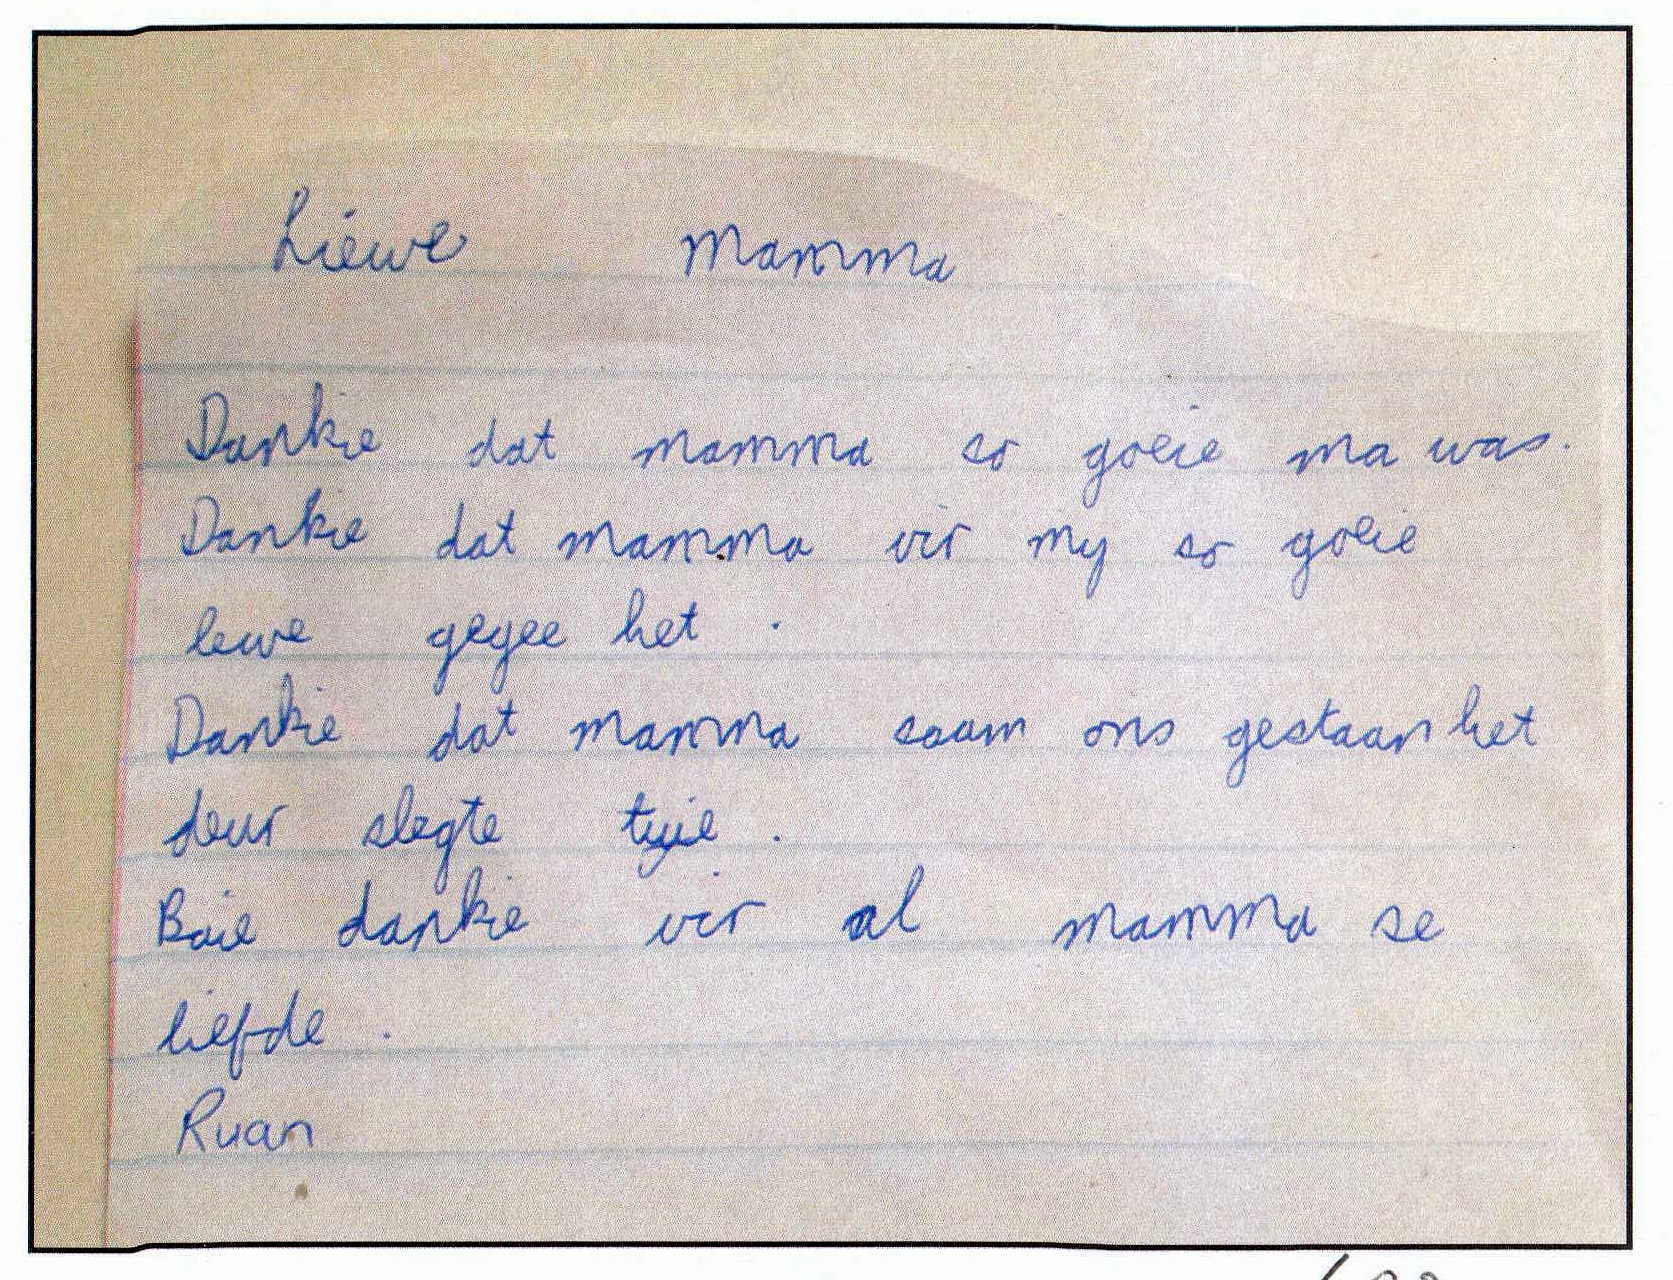 Liewe Mamma
Dankie dat mamma so goeie ma was.
Dankie dat mamma vir my so goeie
lewe gegee het.
Dankie dat mamma saam ons gestaan het
deur slegte tye.
Baie dankie vir al mamma se
liefde.
Ruan